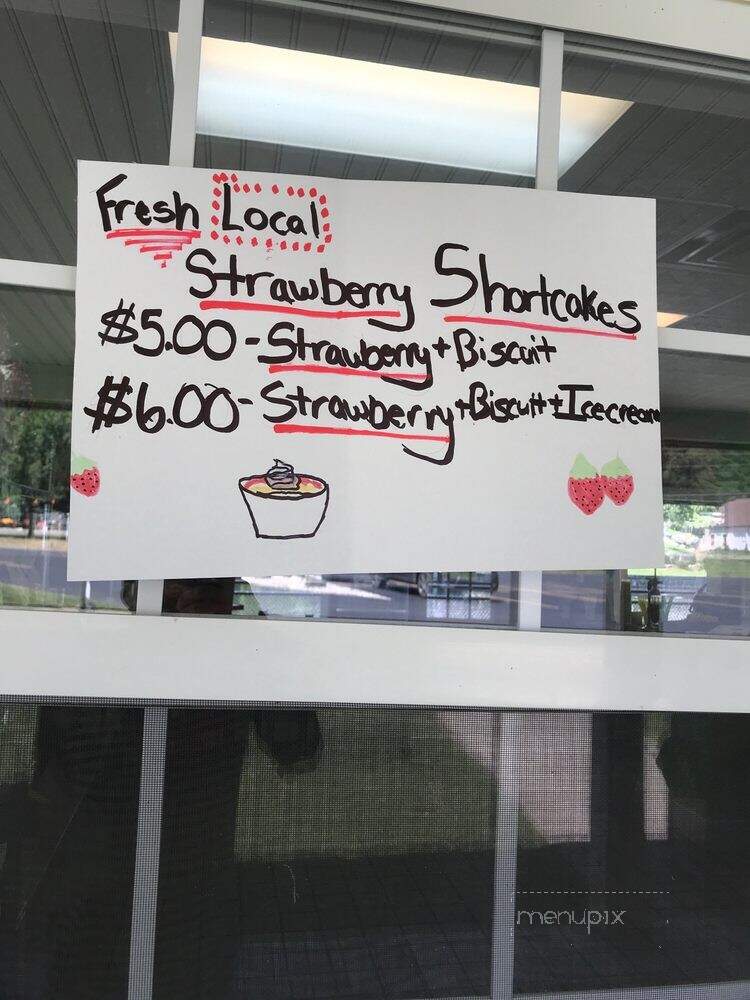 Fresh Local
Strawberry Shortcakes
$5.00 - Strawberry + Biscuit
$6.00 - Strawberry + Biscuit + Icecream
menupix